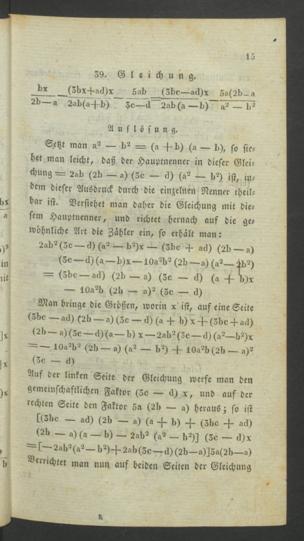 15
39. Gleichung.
bx/2b—a — (3bx+ad)x/2ab(a+b) — 5ab/3c—d = (3bc—ad)x/2ab(a—b) — 5a(2b—a/a² — b²
Auflösung.
Setzt man a² — b² = (a + b) (a — b), so sie-
het man leicht, daß der Hauptnenner in dieser Glei-
chung = 2ab (2b — a) (3c — d) (a² — b²) ist, in-
dem dieser Ausdruck durch die einzelnen Nenner theil-
bar ist. Verstehet man daher die Gleichung mit die-
sem Hauptnenner, und richtet hernach auf die ge-
wöhnliche Art die Zähler ein, so erhält man:
2ab² (3c — d) (a² — b²)x — (3bc + ad) (2b — a)
(3c — d) (a — b)x — 10a²b² (2b — a) (a² — b²)
= (3bc — ad) (2b — a) (3c — d) (a + b)x
— 10a²b (2b — a)² (3c — d)
Man bringe die Größen, worin x ist, auf eine Seite
(3bc — ad) (2b — a) (3c — d) (a + b) x + (3bc + ad)
(2b — a) (3c — d) (a — b) x — 2ab² (3c — d) (a² — b²)x
= — 10a²b² (2b — a) (a² — b²) + 10a²b (2b — a)²
(3c — d)
Auf der linken Seite der Gleichung werfe man den
gemeinschaftlichen Faktor (3c — d) x, und auf der
rechten Seite den Faktor 5a (2b — a) heraus; so ist
[(3bc — ad) (2b — a) (a + b) + (3bc + ad)
(2b — a) (a — b) — 2ab² (a² — b²)] (3c — d)x
= [— 2ab² (a² — b²) + 2ab (3c — d) (2b — a)] 5a(2b — a)
Verrichtet man nun auf beiden Seiten der Gleichung